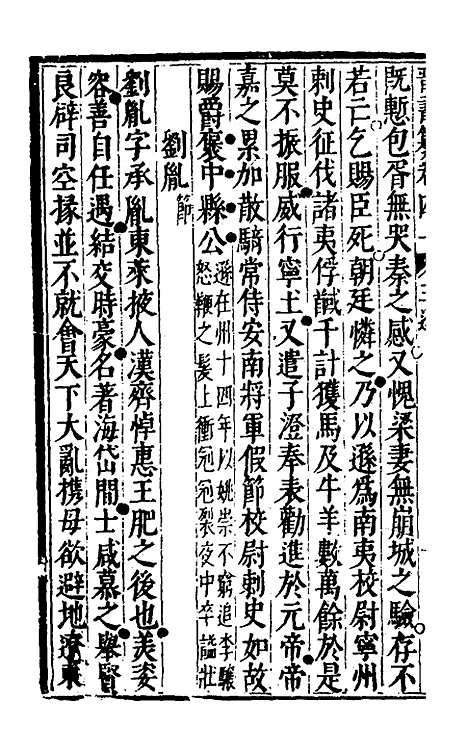 既慙包胥無哭秦之感又愧梁妻無崩城之驗存不
若亡乞賜臣死朝廷憐之乃以遜爲南夷校尉寧州
刺史征伐諸夷俘馘千計獲馬及牛羊數萬餘於是
莫不振服威行寧土又遣子澄奉表勸進於元帝帝
嘉之累加散騎常侍安南將軍假節校尉刺史如故
賜爵襃中縣公
遜在州十四年以姚崇不窮追李驤
怒鞭之髮上衝冠冠裂夜中卒謚壯
劉胤節
劉胤字承胤東萊掖人漢齊悼惠王肥之後也美姿
容善自任遇結交時豪名著海岱間士咸慕之舉賢
良辟司空掾並不就會天下大亂攜母欲避地遼東